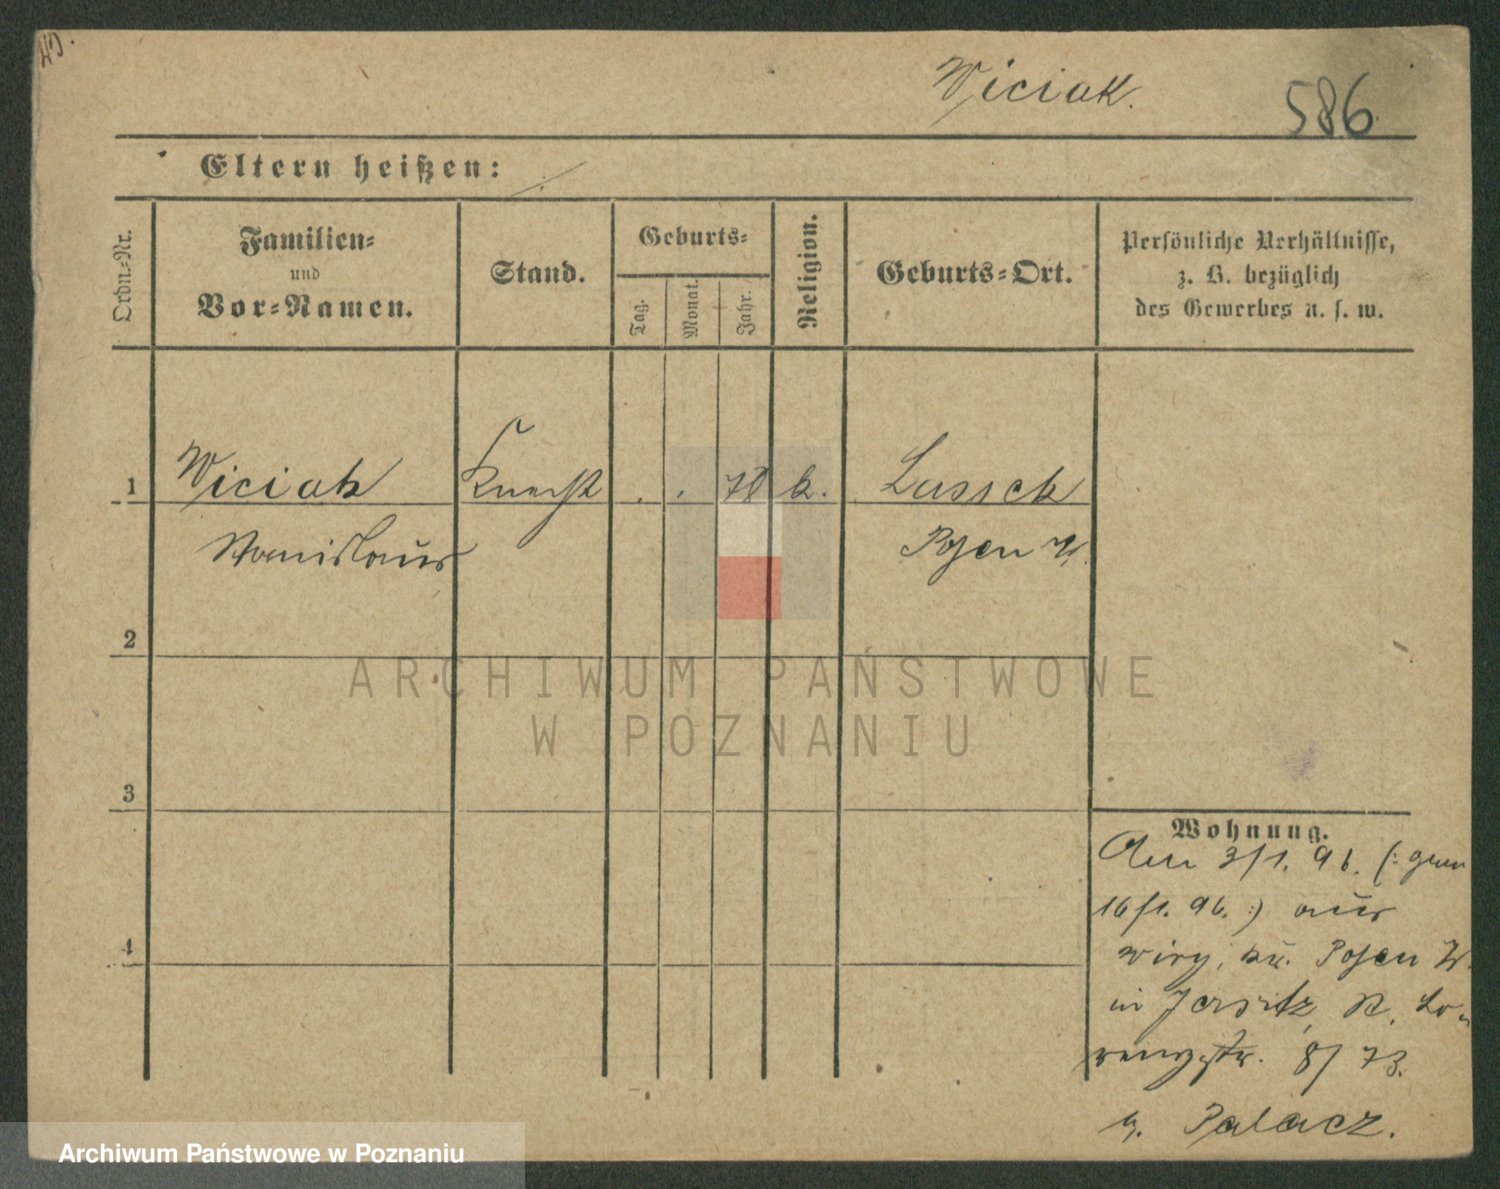 Wiciak.
586
Eltern heißen:
Ordn.-Nr.
Familien-
und
Vor-Namen.
Stand.
Geburts-
Tag.
Monat.
Jahr.
Religion.
Geburts-Ort.
Persönliche Verhältnisse,
z. B. bezüglich
des Gewerbes u. s. w.
1 Wiciak Knecht . . 78 k. Lassek
Stanislaus Posen W.
2
3
4
Wohnung.
Am 3/1. 96. (: gem
16/1. 96. :) aus
Wiry, Kr. Posen W.
in Jersitz, St. Lo-
renzstr. 8/ 73.
n. Palacz.
ARCHIWUM PAŃSTWOWE
W POZNANIU
Archiwum Państwowe w Poznaniu